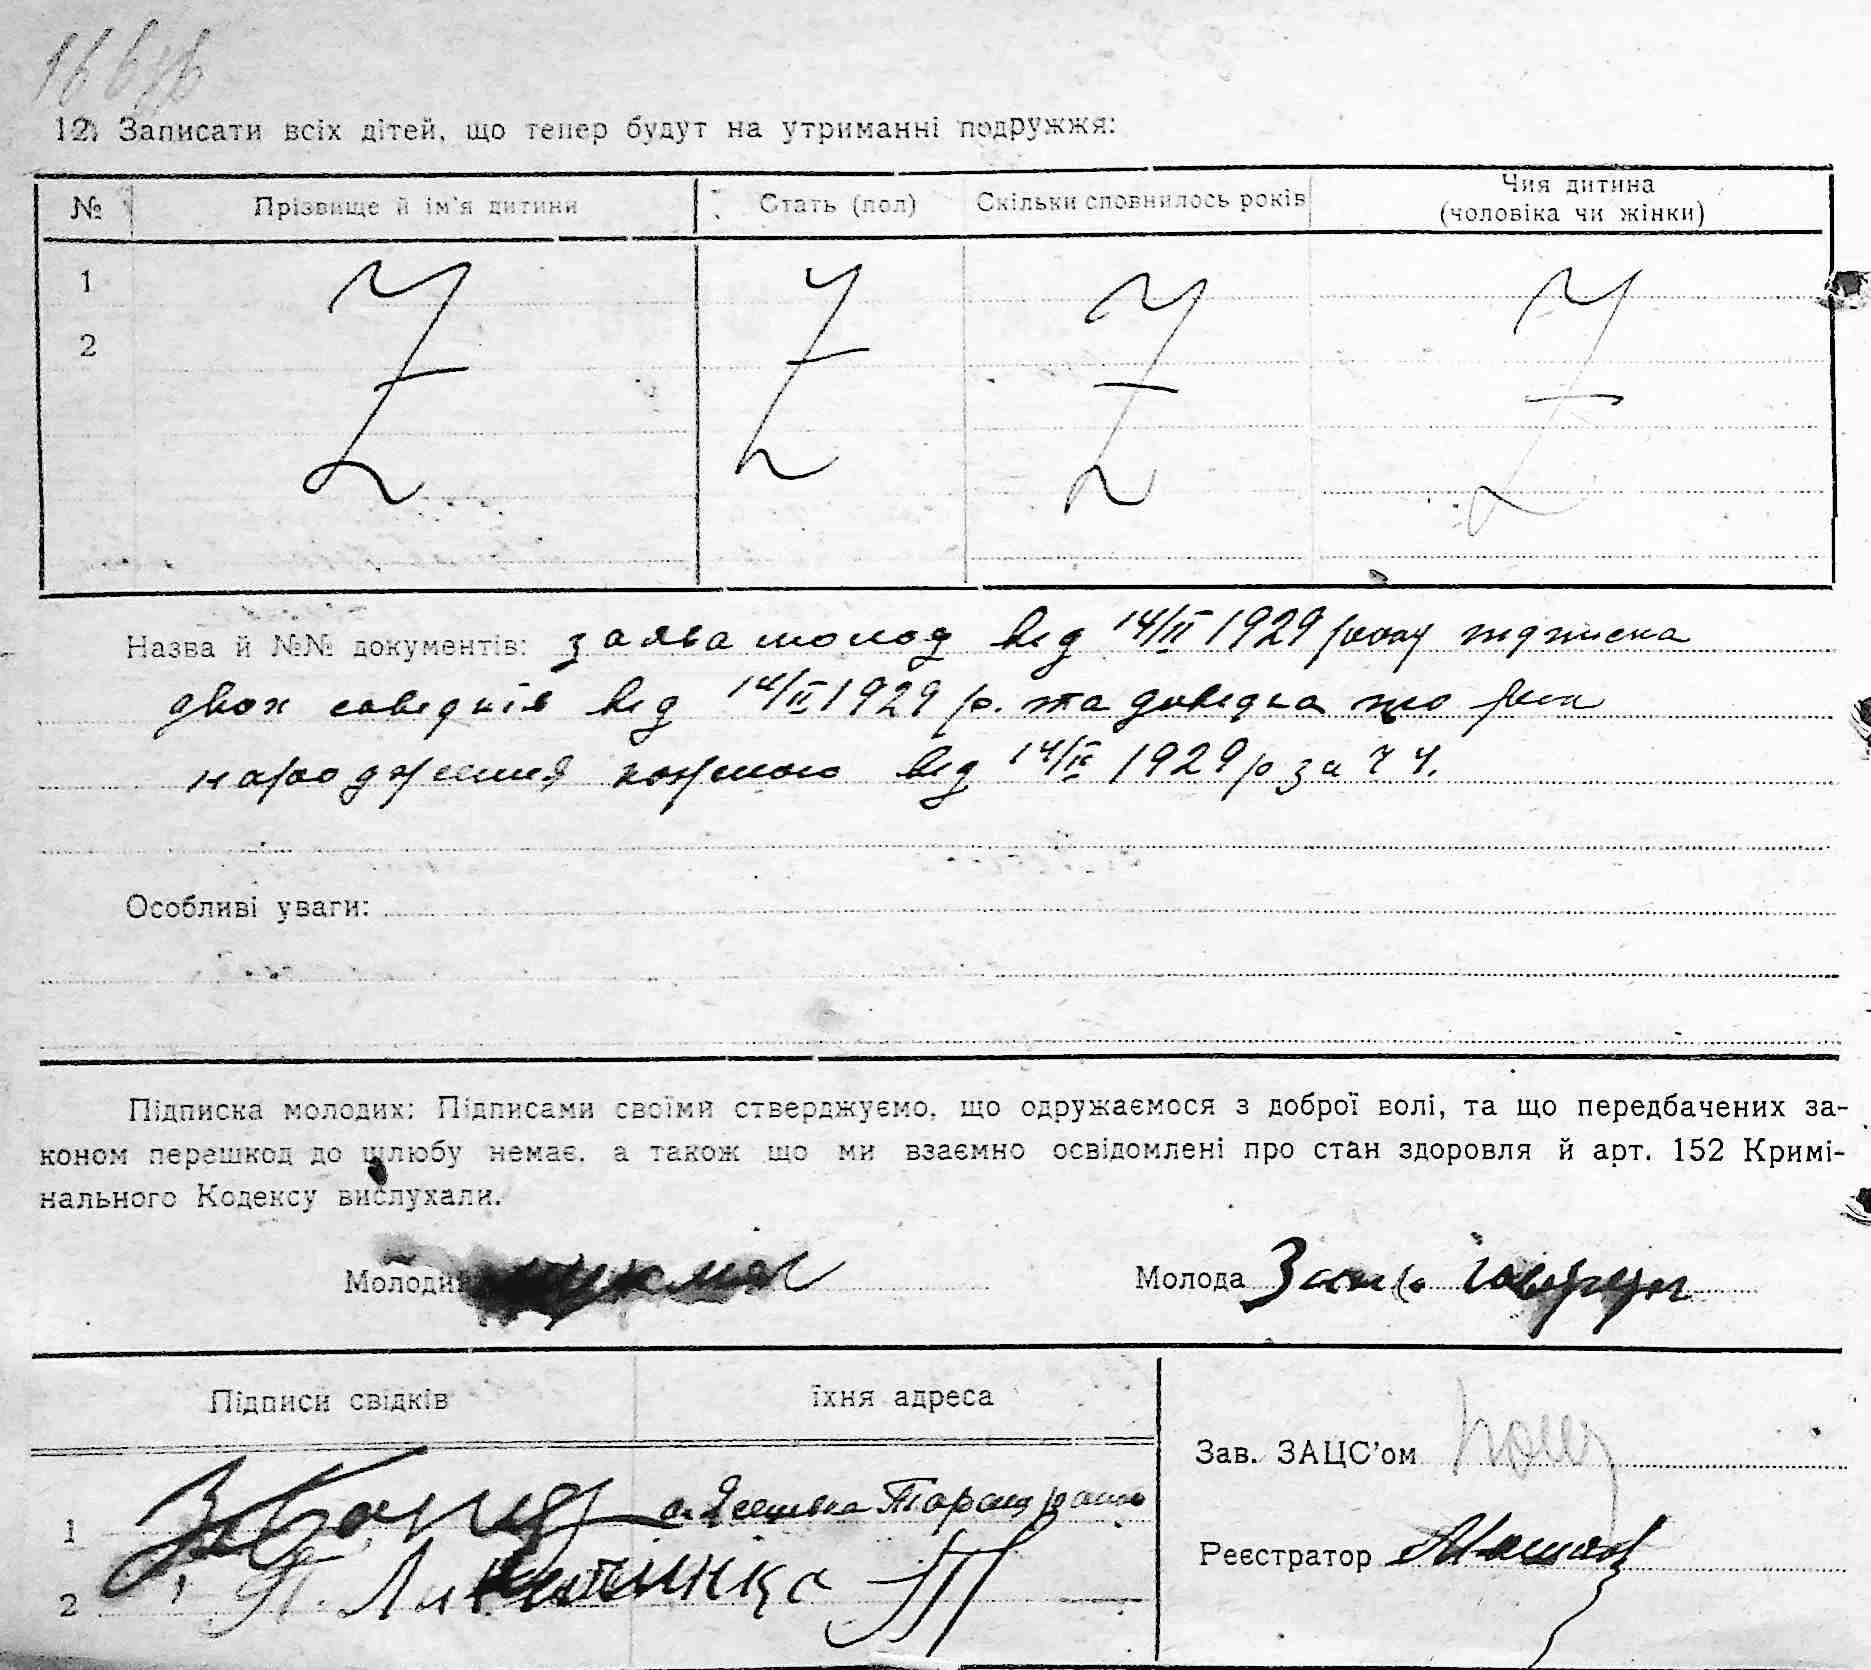 12. Записати всіх дітей, що тепер будут на утриманні подружжя:
№ Прізвище й ім'я дитини Стать (пол) Скільки сповнилось років Чия дитина (чоловіка чи жінки)
1
2
Назва й №№ документів: заява молод від 14/II 1929 року підписка
двох свідків від 14/II 1929 р. та довідка про рік
народження кожного від 14/II 1929 р за ч 4.
Особливі уваги:
Підписка молодих: Підписами своїми стверджуємо, що одружаємося з доброї волі, та що передбачених за-
коном перешкод до шлюбу немає, а також що ми взаємно освідомлені про стан здоровля й арт. 152 Кримі-
нального Кодексу вислухали.
Молодий Молода
Підписи свідків їхня адреса
Зав. ЗАЦС'ом
1
Реєстратор
2